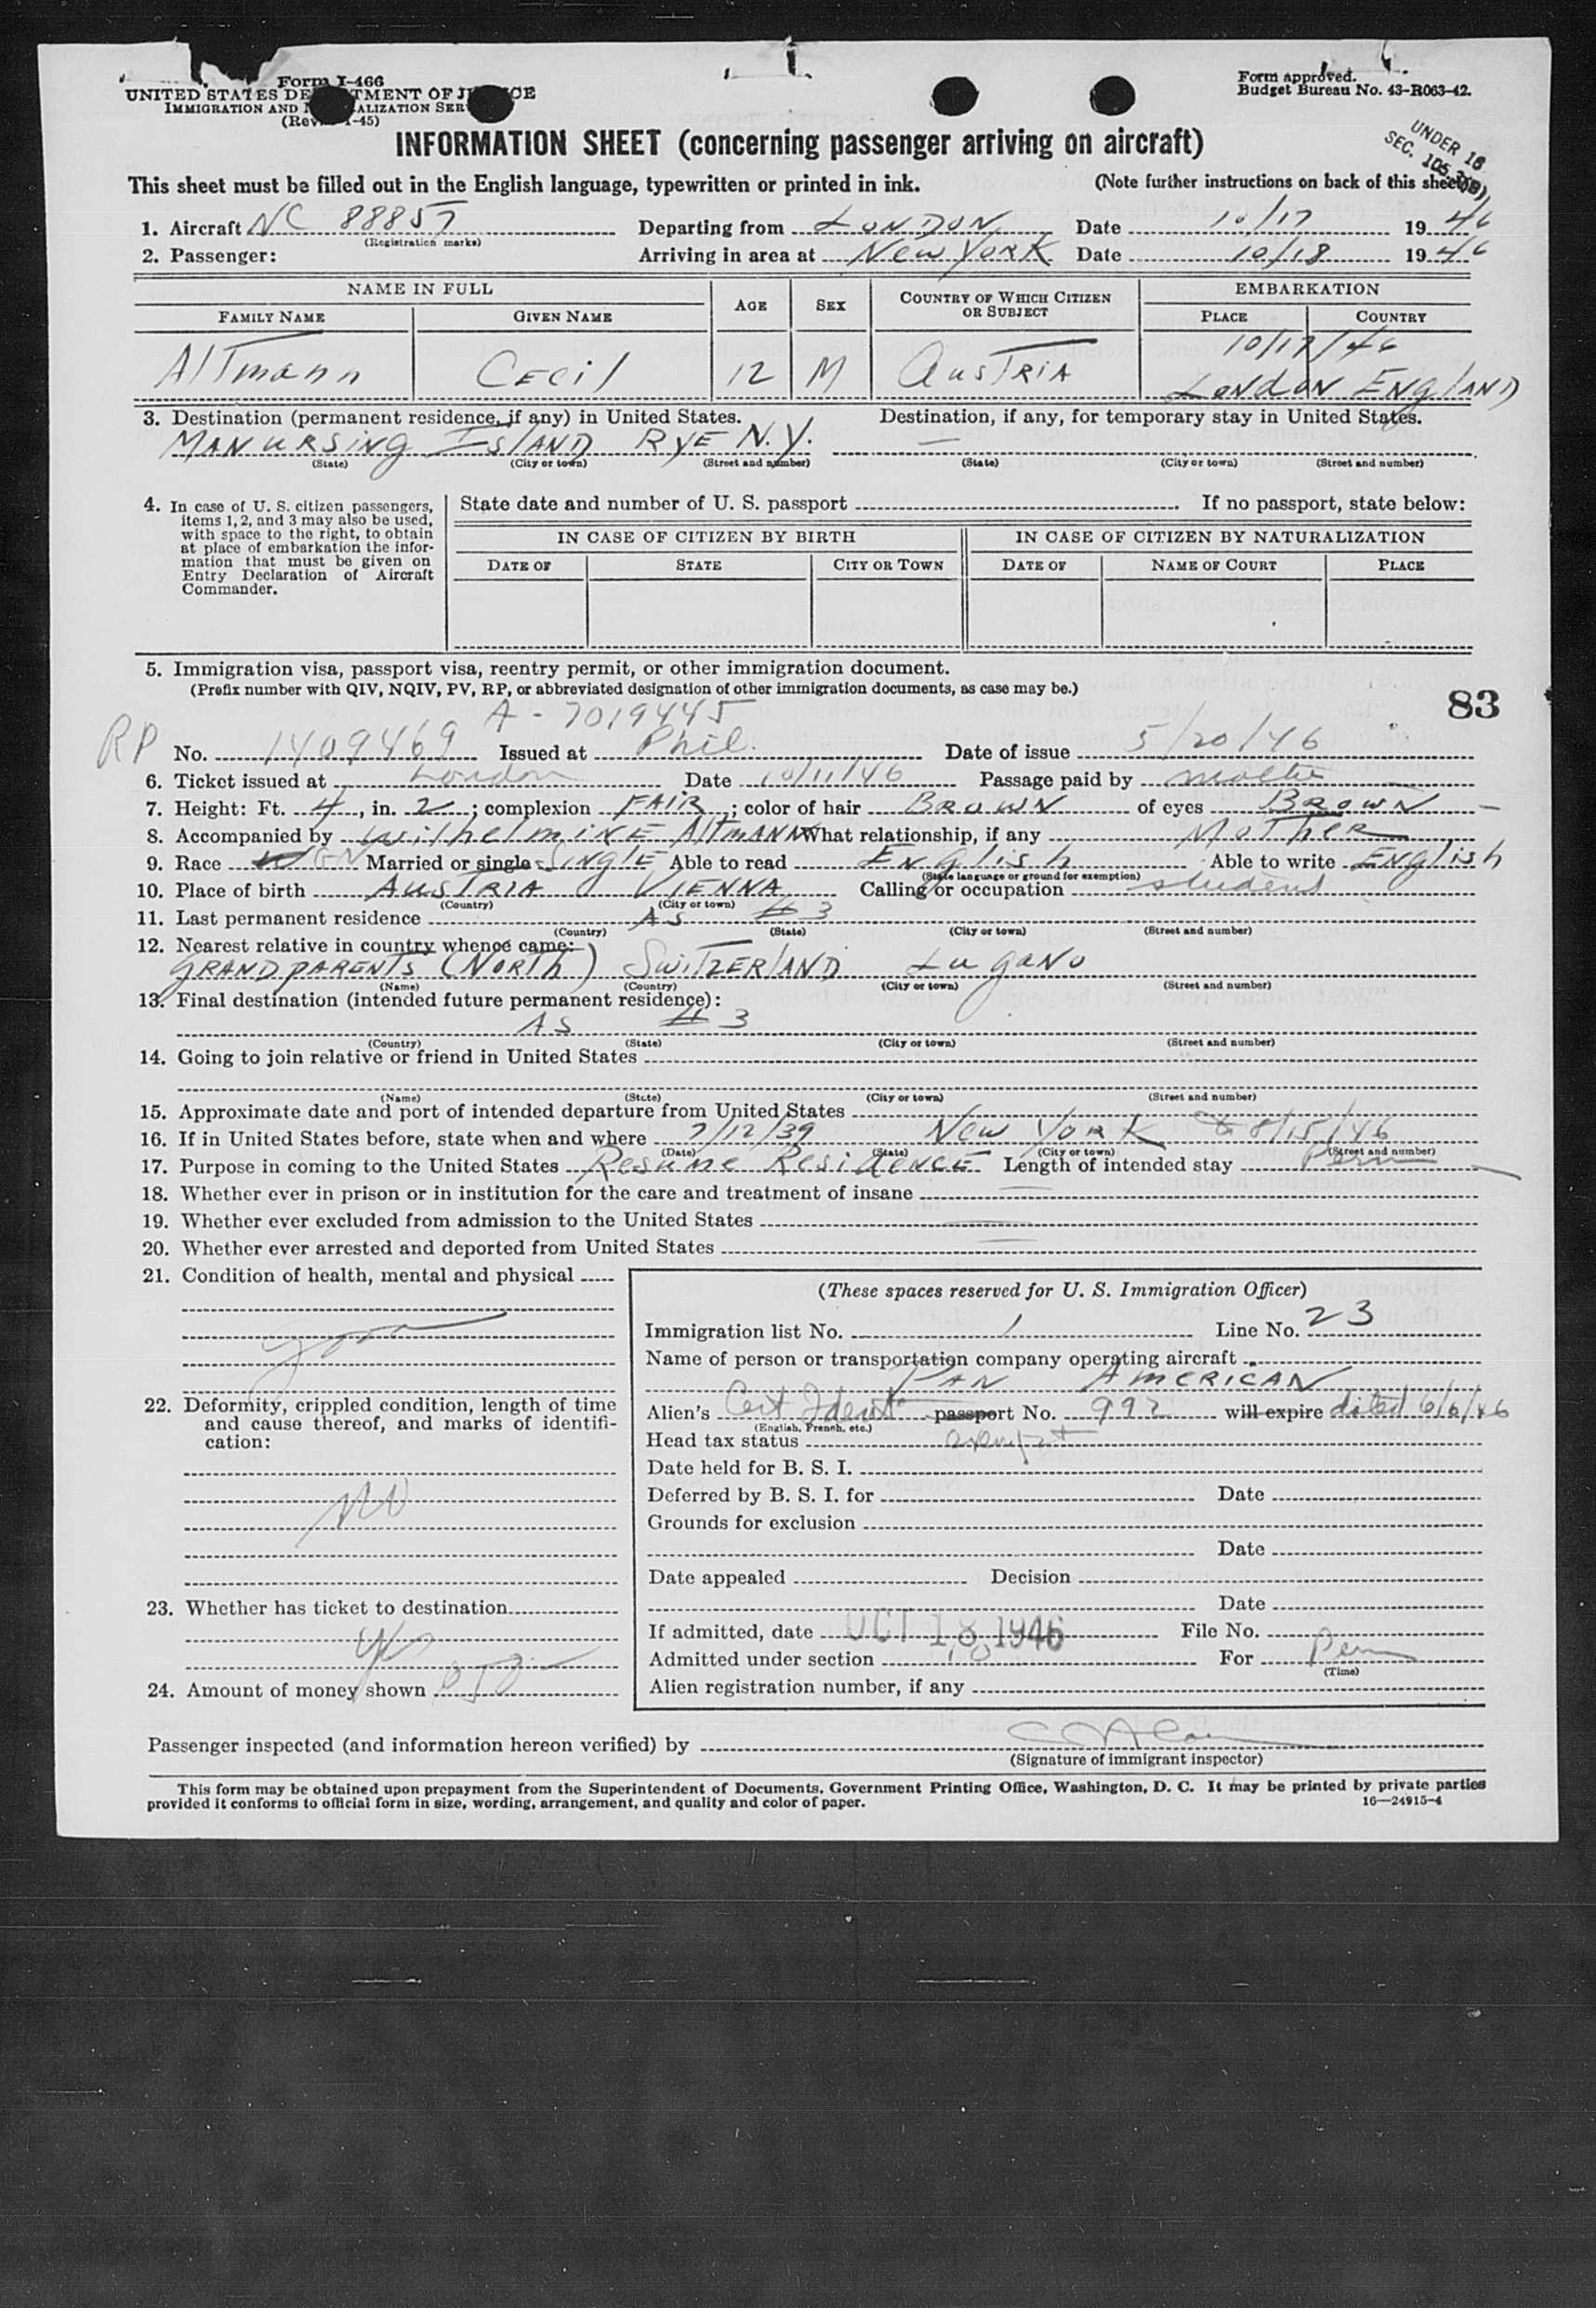 Form I-466
UNITED STATES DE TMENT OF J CE
IMMIGRATION AND N ALIZATION SER
(Rev. 1-45)
Form approved.
Budget Bureau No. 43-R063-42.
INFORMATION SHEET (concerning passenger arriving on aircraft)
UNDER 16
SEC. 105.3(B)
This sheet must be filled out in the English language, typewritten or printed in ink. (Note further instructions on back of this sheet)
1. Aircraft NC 88857 Departing from LONDON Date 10/17 1946
(Registration marks)
2. Passenger: Arriving in area at New York Date 10/18 1946
NAME IN FULL AGE SEX COUNTRY OF WHICH CITIZEN OR SUBJECT EMBARKATION
FAMILY NAME GIVEN NAME PLACE COUNTRY
10/17/46
Altmann Cecil 12 M Austria London England
3. Destination (permanent residence, if any) in United States. Destination, if any, for temporary stay in United States.
MANURSING ISLAND RYE N.Y. —
(State) (City or town) (Street and number) (State) (City or town) (Street and number)
4. In case of U. S. citizen passengers, items 1, 2, and 3 may also be used, with space to the right, to obtain at place of embarkation the information that must be given on Entry Declaration of Aircraft Commander.
State date and number of U. S. passport If no passport, state below:
IN CASE OF CITIZEN BY BIRTH IN CASE OF CITIZEN BY NATURALIZATION
DATE OF STATE CITY OR TOWN DATE OF NAME OF COURT PLACE
5. Immigration visa, passport visa, reentry permit, or other immigration document.
(Prefix number with QIV, NQIV, PV, RP, or abbreviated designation of other immigration documents, as case may be.)
83
A-7019445
RP No. 1409469 Issued at Phil. Date of issue 5/20/46
6. Ticket issued at London Date 10/11/46 Passage paid by mother
7. Height: Ft. 4, in. 2; complexion FAIR; color of hair BROWN of eyes BROWN
8. Accompanied by Wilhelmine Altmann What relationship, if any MOTHER
9. Race Married or single Single Able to read English Able to write English
(State language or ground for exemption)
10. Place of birth AUSTRIA VIENNA Calling or occupation student
(Country) (City or town)
11. Last permanent residence AS # 3
(Country) (State) (City or town) (Street and number)
12. Nearest relative in country whence came:
GRANDPARENTS (NORTH) SWITZERLAND LUGANO
(Name) (Country) (City or town) (Street and number)
13. Final destination (intended future permanent residence):
AS # 3
(Country) (State) (City or town) (Street and number)
14. Going to join relative or friend in United States
(Name) (State) (City or town) (Street and number)
15. Approximate date and port of intended departure from United States
16. If in United States before, state when and where 7/12/39 New York & 8/15/46
(Date) (State) (City or town) (Street and number)
17. Purpose in coming to the United States Resume Residence Length of intended stay Perm
18. Whether ever in prison or in institution for the care and treatment of insane —
19. Whether ever excluded from admission to the United States —
20. Whether ever arrested and deported from United States —
21. Condition of health, mental and physical
good
22. Deformity, crippled condition, length of time and cause thereof, and marks of identification:
NO
23. Whether has ticket to destination
yes
24. Amount of money shown
(These spaces reserved for U. S. Immigration Officer)
Immigration list No. 1 Line No. 23
Name of person or transportation company operating aircraft
PAN AMERICAN
Alien's Cert Ident passport No. 992 will expire dated 6/6/46
(English, French, etc.)
Head tax status exempt
Date held for B. S. I.
Deferred by B. S. I. for Date
Grounds for exclusion
Date
Date appealed Decision
Date
If admitted, date OCT 18 1946 File No.
Admitted under section For Perm
(Time)
Alien registration number, if any
Passenger inspected (and information hereon verified) by
(Signature of immigrant inspector)
This form may be obtained upon prepayment from the Superintendent of Documents, Government Printing Office, Washington, D. C. It may be printed by private parties
provided it conforms to official form in size, wording, arrangement, and quality and color of paper. 16—24915-4